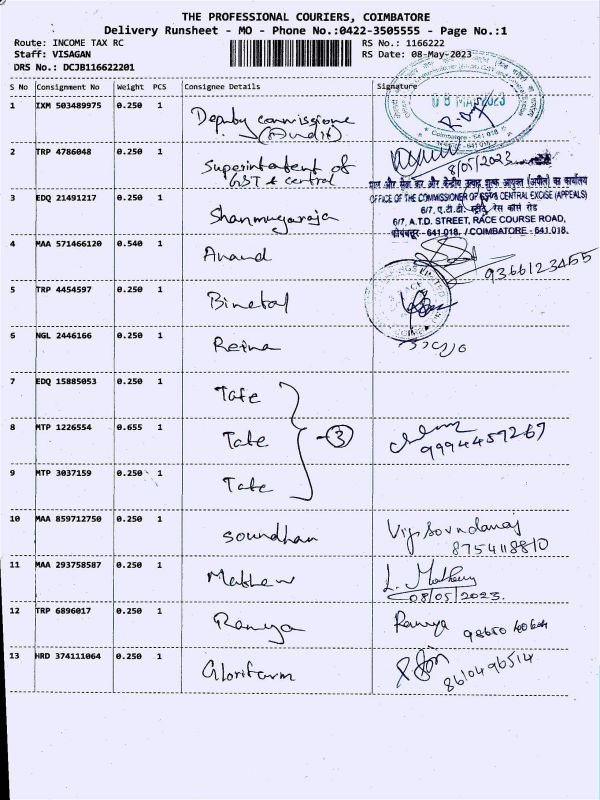 THE PROFESSIONAL COURIERS, COIMBATORE
Delivery Runsheet - MO - Phone No.:0422-3505555 - Page No.:1
Route: INCOME TAX RC RS No.: 1166222
Staff: VISAGAN RS Date: 08-May-2023
DRS No.: DCJB116622201
S No Consignment No Weight PCS Consignee Details Signature
1 IXM 503489975 0.250 1 Deputy commissione
(Audit)
08 MAY 2023
Coimbatore - 641 018
2 TRP 4786048 0.250 1 Superintentent of
GST & central
8/05/2023
3 EDQ 21491217 0.250 1 Shanmugaraja
OFFICE OF THE COMMISSIONER OF CENTRAL EXCISE (APPEALS)
6/7, ए.टी.डी. स्ट्रीट, रेस कोर्स रोड
6/7, A.T.D. STREET, RACE COURSE ROAD,
कोयंबत्तूर - 641 018. / COIMBATORE - 641 018.
4 MAA 571466120 0.540 1 Anand 9366123455
5 TRP 4454597 0.250 1 Bimetal
6 NGL 2446166 0.250 1 Reina
7 EDQ 15885053 0.250 1 Tafe
8 MTP 1226554 0.655 1 Tafe 3 9994459269
9 MTP 3037159 0.250 1 Tafe
10 MAA 859712750 0.250 1 Soundhan
8754118810
11 MAA 293758587 0.250 1 Mathew L. Mathew
08/05/2023.
12 TRP 6896017 0.250 1 Ramya Ramya
13 HRD 374111064 0.250 1 Glorifarm 8610496514